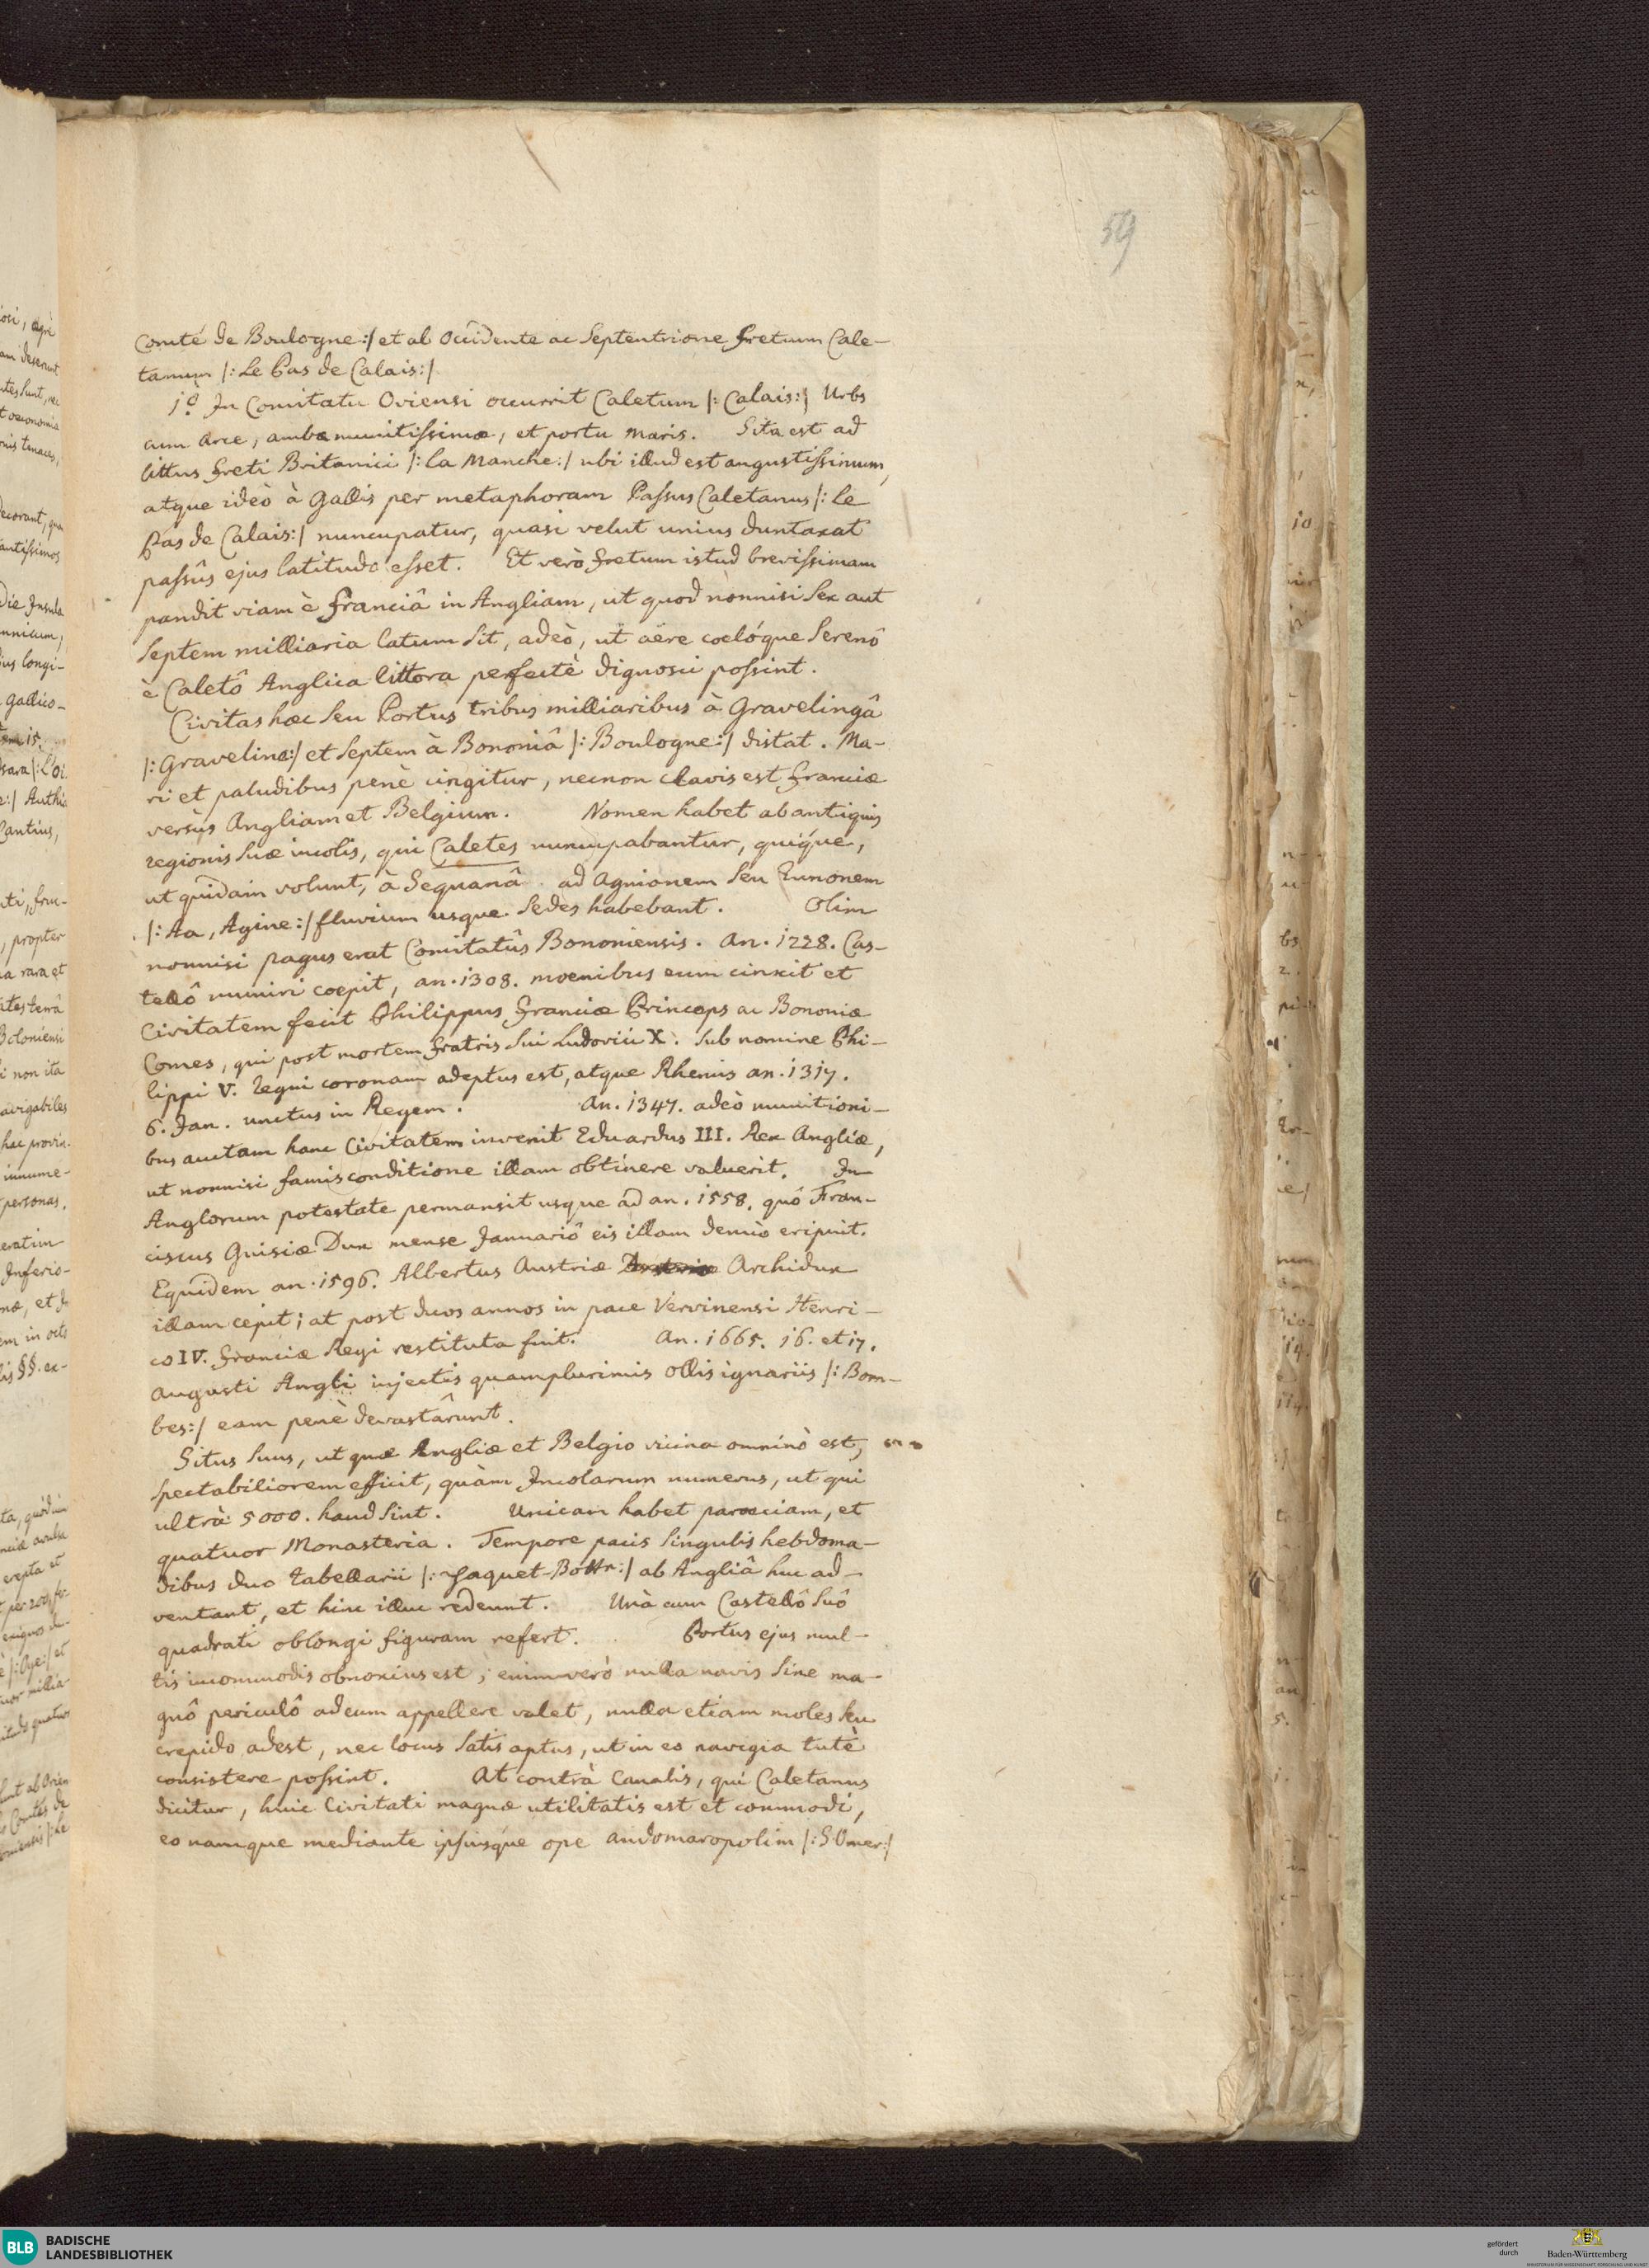 59
Comté de Boulogne:/ et ab Occidente ac Septentrione fretum Cale-
tanum /: Le Pas de Calais:/
1º In Comitatu Oviensi occurrit Caletum /: Calais:/ Urbs
cum arce, ambæ munitissimæ, et portu maris. Sita est ad
littus freti Britanici /: la Manche:/ ubi illud est angustissimum,
atque ideò à Gallis per metaphoram Passus Caletanus /: le
Pas de Calais:/ nuncupatur, quasi velut unius duntaxat
passûs ejus latitudo esset. Et verò fretum istud brevissimam
pandit viam è Franciâ in Angliam, ut quod nonnisi sex aut
septem milliaria latum sit, adeò, ut aëre coelóque serenô
è Caletô Anglica littora perfectè dignosci possint.
Civitas hæc seu Portus tribus milliaribus à Gravelingâ
/: Graveline:/ et septem à Bononiâ /: Boulogne:/ distat. Ma-
ri et paludibus penè cingitur, necnon clavis est Franciæ
versùs Angliam et Belgium. Nomen habet ab antiquis
regionis suæ incolis, qui Caletes nuncupabantur, quique,
ut quidam volunt, à Sequanâ ad Agnionem seu Eunonem
/: Aa, Agine:/ fluvium usque sedes habebant. Olim
nonnisi pagus erat Comitatûs Bononiensis. An. 1228. Cas-
tellô muniri coepit, an. 1308. moenibus eum cinxit et
Civitatem fecit Philippus Franciæ Princeps ac Bononiæ
Comes, qui post mortem fratris sui Ludovici X. sub nomine Phi-
lippi V. regni coronam adeptus est, atque Rhemis an. 1317.
6. Jan. unctus in Regem. An. 1347. adeò munitioni-
bus auctam hanc Civitatem invenit Eduardus III. Rex Angliæ,
ut nonnisi famis conditione illam obtinere valuerit. In
Anglorum potestate permansit usque ad an. 1558. quô Fran-
ciscus Guisiæ Dux mense Januariô eis illam denuò eripuit.
Equidem an. 1596. Albertus Austriæ Archidux
illam cepit; at post duos annos in pace Vervinensi Henri-
co IV. Franciæ Regi restituta fuit. An. 1665. 16. et 17.
Augusti Angli injectis quamplurimis ollis ignariis /: Bom-
bes:/ eam penè devastârunt.
Situs suus, ut quæ Angliæ et Belgio vicina omninò est,
spectabiliorem efficit, quàm Incolarum numerus, ut qui
ultrà 5000. haud sint. Unicam habet parœciam, et
quatuor Monasteria. Tempore pacis singulis hebdoma-
dibus duo tabellarii /: Paquet-Bott:/ ab Angliâ huc ad-
ventant, et hinc illuc redeunt. Unà cum Castellô suô
quadrati oblongi figuram refert. Portus ejus mul-
tis incommodis obnoxius est, enimverò nulla navis sine ma-
gnô periculô ad eum appellere valet, nulla etiam moles seu
crepido adest, nec locus satis aptus, ut in eo navigia tutè
consistere possint. At contrà Canalis, qui Caletanus
dicitur, huic Civitati magnæ utilitatis est et commodi,
eo namque mediante ipsiusque ope Audomaropolim /: S Omer:/
BLB BADISCHE
LANDESBIBLIOTHEK
gefördert
durch
Baden-Württemberg